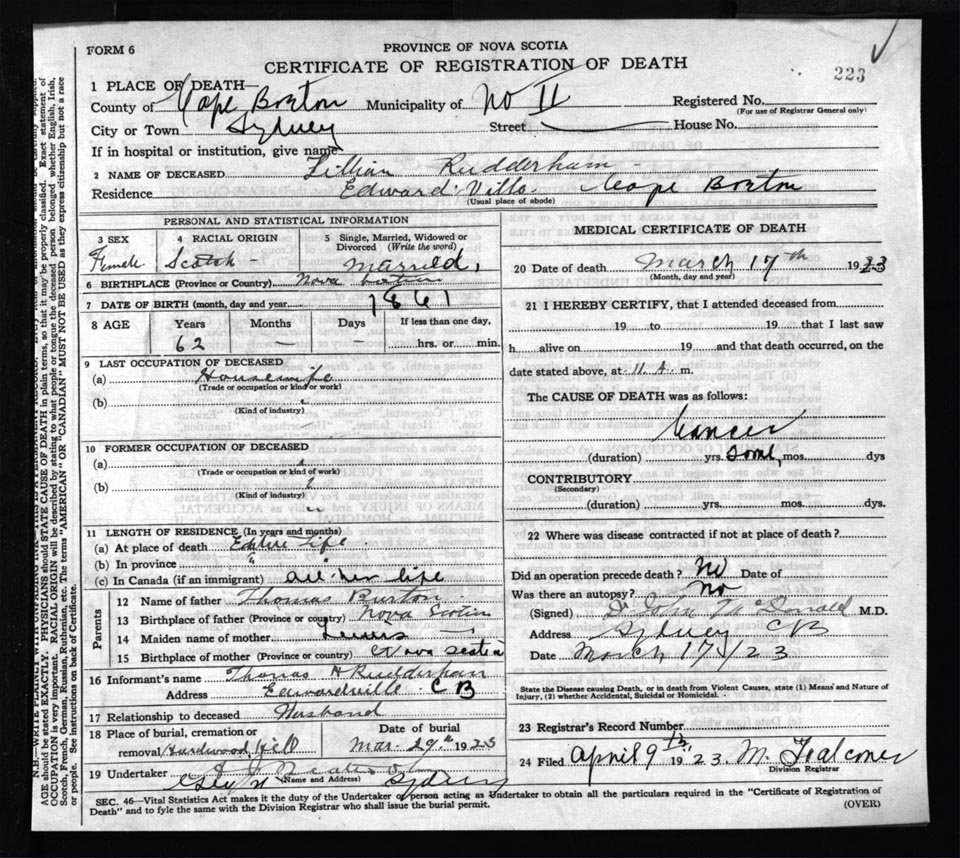 FORM 6
PROVINCE OF NOVA SCOTIA
CERTIFICATE OF REGISTRATION OF DEATH
223
1 PLACE OF DEATH—
County of Cape Breton Municipality of No 11 Registered No.
(For use of Registrar General only)
City or Town Sydney Street House No.
If in hospital or institution, give name
2 NAME OF DECEASED Lillian Rudderham
Residence Edward Ville Cape Breton
(Usual place of abode)
PERSONAL AND STATISTICAL INFORMATION
3 SEX 4 RACIAL ORIGIN 5 Single, Married, Widowed or
Divorced (Write the word)
Female Scotch Married
6 BIRTHPLACE (Province or Country) Nova Scotia
7 DATE OF BIRTH (month, day and year) 1861
8 AGE Years Months Days If less than one day,
62 — — hrs. or min.
9 LAST OCCUPATION OF DECEASED
(a) Housewife
(Trade or occupation or kind of work)
(b)
(Kind of industry)
10 FORMER OCCUPATION OF DECEASED
(a)
(Trade or occupation or kind of work)
(b)
(Kind of industry)
11 LENGTH OF RESIDENCE (In years and months)
(a) At place of death Entire life
(b) In province " "
(c) In Canada (if an immigrant) all her life
Parents
12 Name of father Thomas Burton
13 Birthplace of father (Province or country) Nova Scotia
14 Maiden name of mother Lewis
15 Birthplace of mother (Province or country) Nova Scotia
16 Informant's name Thomas H Rudderham
Address Edwardville C B
17 Relationship to deceased Husband
18 Place of burial, cremation or Date of burial
removal Hardwood Hill Mar. 29th 1923
19 Undertaker
(Name and Address)
Sydney
MEDICAL CERTIFICATE OF DEATH
20 Date of death March 17th 1923
(Month, day and year)
21 I HEREBY CERTIFY, that I attended deceased from
19 to 19 that I last saw
h alive on 19 and that death occurred, on the
date stated above, at 11 A m.
The CAUSE OF DEATH was as follows:
Cancer
(duration) yrs. Some mos. dys
CONTRIBUTORY
(Secondary)
(duration) yrs. mos. dys.
22 Where was disease contracted if not at place of death?
Did an operation precede death? No Date of
Was there an autopsy? No
(Signed) Dr John McDonald M.D.
Address Sydney CB
Date March 17/23
State the Disease causing Death, or in death from Violent Causes, state (1) Means and Nature of
Injury, (2) whether Accidental, Suicidal or Homicidal.
23 Registrar's Record Number
24 Filed April 9th 1923 M. Falconer
Division Registrar
SEC. 46—Vital Statistics Act makes it the duty of the Undertaker or person acting as Undertaker to obtain all the particulars required in the "Certificate of Registration of
Death" and to fyle the same with the Division Registrar who shall issue the burial permit. (OVER)
AGE should be stated EXACTLY. PHYSICIANS should STATE CAUSE OF DEATH in plain terms, so that it may be properly classified. Exact statement of
OCCUPATION is very important. RACIAL ORIGIN will be described by stating to what people or tongue the deceased person belonged whether English, Irish,
Scotch, French, German, Russian, Ruthenian, etc. The terms "AMERICAN" OR "CANADIAN" MUST NOT BE USED as they express citizenship but not a race
or people. See instructions on back of Certificate.